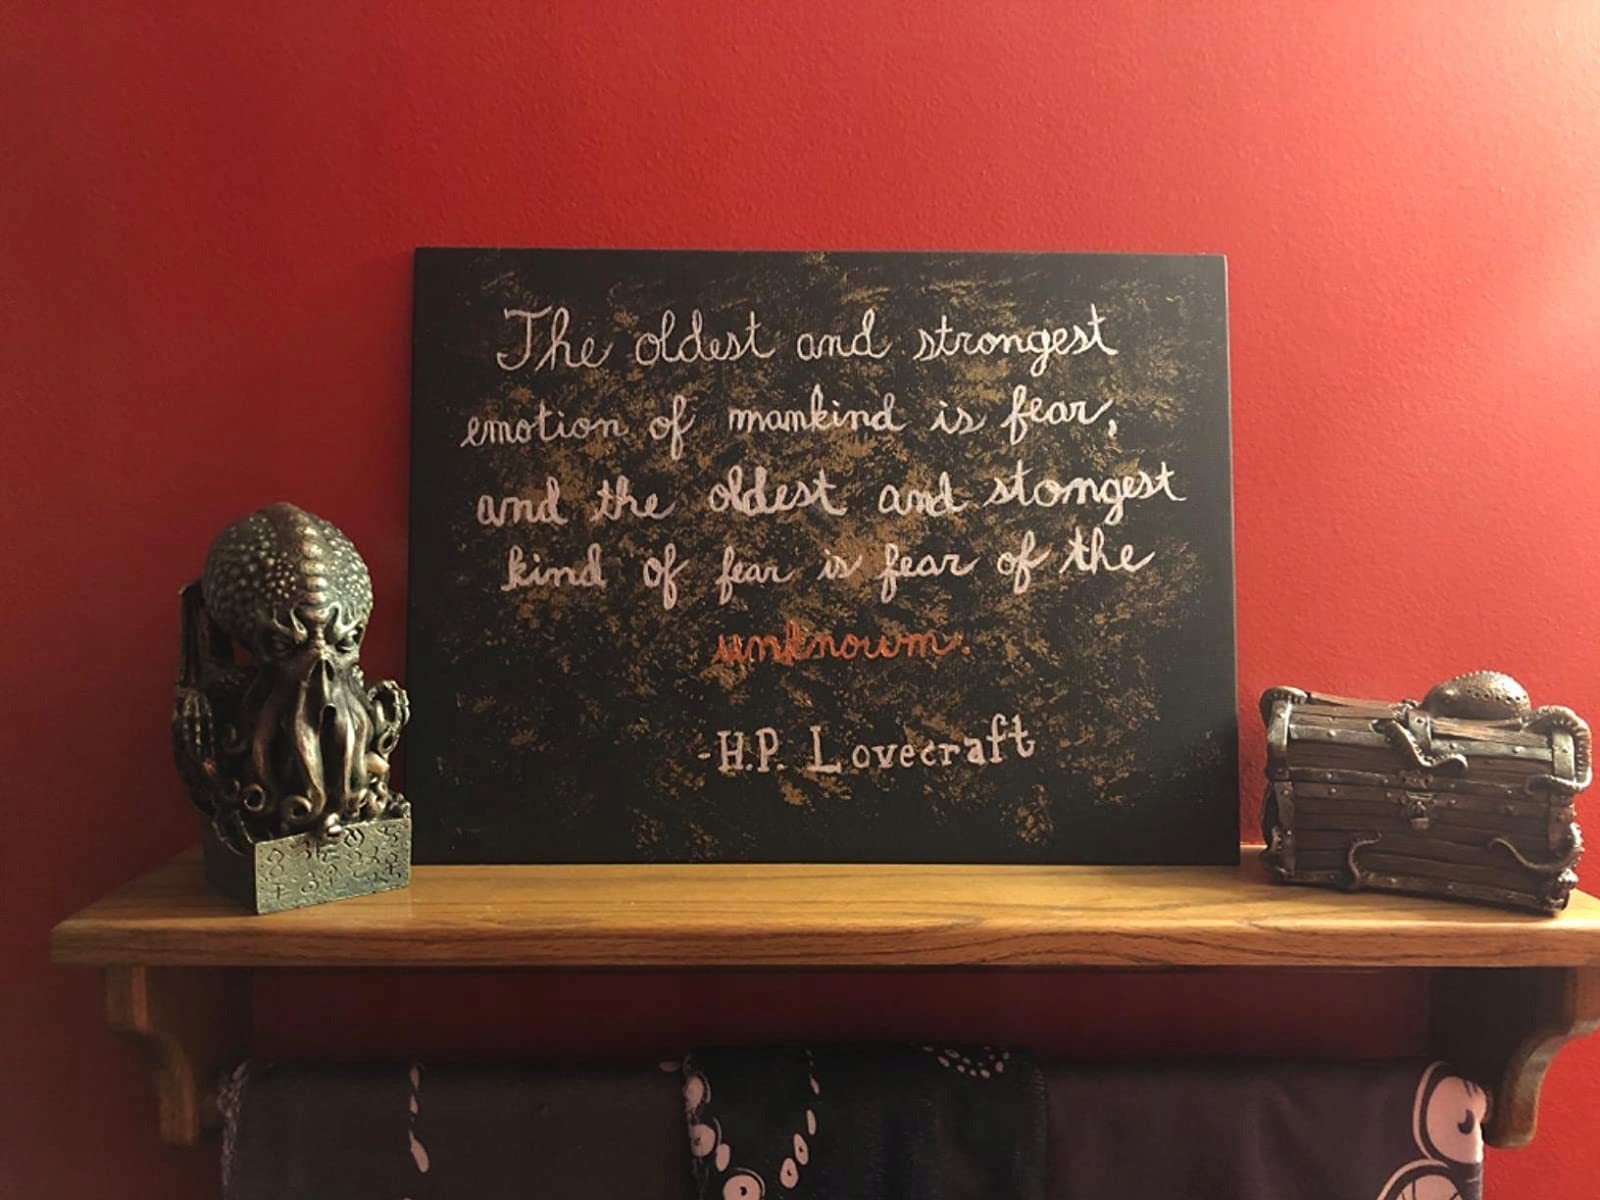 The oldest and strongest
emotion of mankind is fear,
and the oldest and stongest
kind of fear is fear of the
unknown.
-H.P. Lovecraft